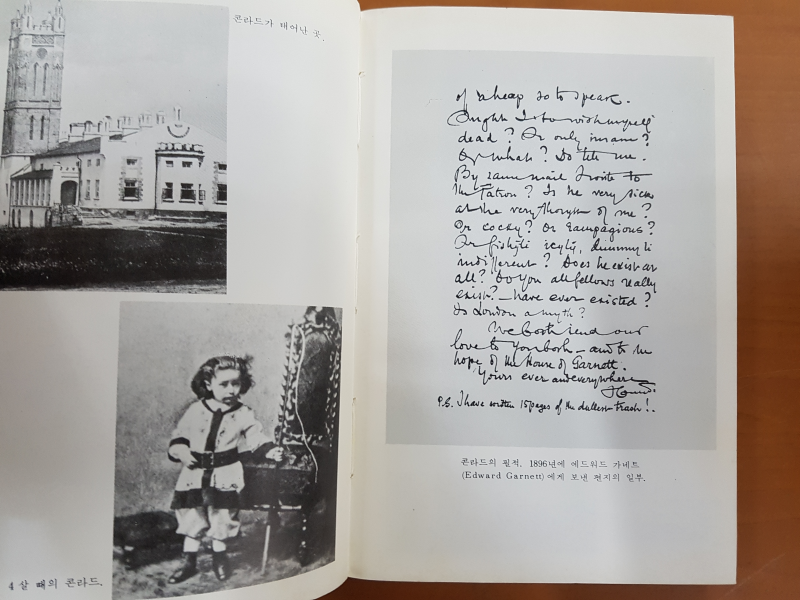 콘라드가 태어난 곳.
4살 때의 콘라드.
of a heap so to speak.
Ought I to wish myself
dead? Or only insane?
Or what? Do tell me.
By same mail I wrote to
the Patron? Is he very sick
at the very thought of me?
Or cocky? Or rampagious?
Or fishily icyly, dummyly
indifferent? Does he exist at
all? Do you all fellows really
exist? – have ever existed?
Is London a myth?
We both send our
love to You both – and to the
hope of the House of Garnett.
Yours ever and everywhere
P.S. I have written 15 pages of the dullest trash!.
콘라드의 필적. 1896년에 에드워드 가네트
(Edward Garnett)에게 보낸 편지의 일부.